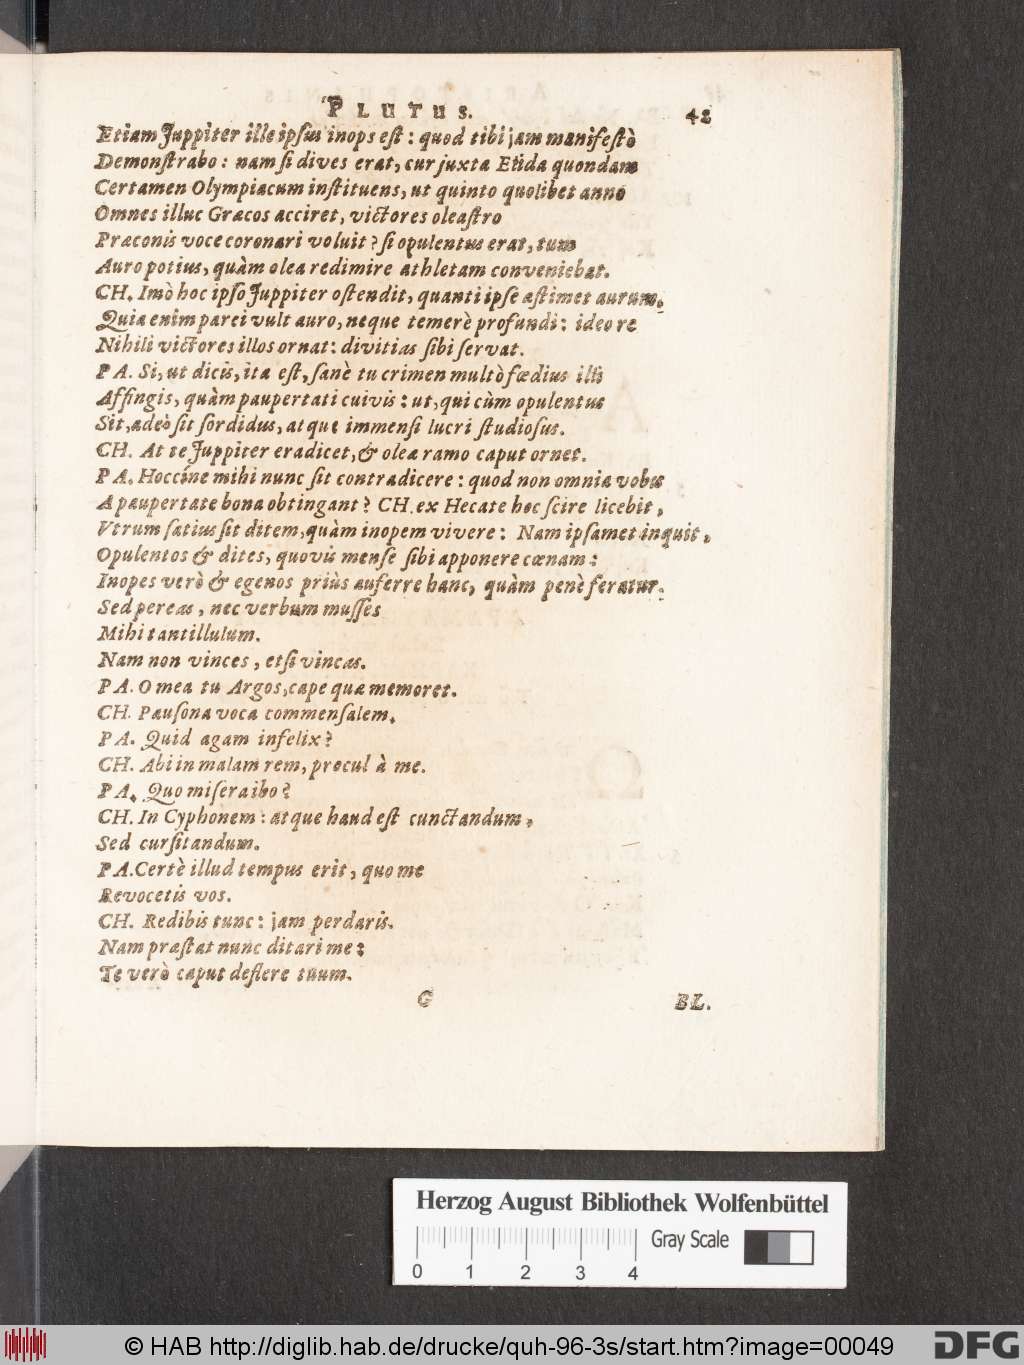 PLUTUS. 42
Etiam Juppiter ille ipsus inops est: quod tibi jam manifestò
Demonstrabo: nam si dives erat, cur juxta Elida quondam
Certamen Olympiacum instituens, ut quinto quolibet anno
Omnes illuc Græcos acciret, victores oleastro
Præconis voce coronari voluit? si opulentus erat, tum
Auro potius, quàm olea redimire athletam conveniebat.
CH. Imò hoc ipso Juppiter ostendit, quanti ipse æstimet aurum.
Quia enim parei vult auro, neque temerè profundi: ideo re
Nihili victores illos ornat: divitias sibi servat.
PA. Si, ut dicis, ita est, sanè tu crimen multò fœdius illi
Affingis, quàm paupertati cuivis: ut, qui cùm opulentus
Sit, adeò sit sordidus, atque immensi lucri studiosus.
CH. At te Juppiter eradicet, & olea ramo caput ornet.
PA. Hoccine mihi nunc sit contradicere: quod non omnia vobis
A paupertate bona obtingant? CH. ex Hecate hoc scire licebit,
Vtrum satius sit ditem, quàm inopem vivere: Nam ipsamet inquit,
Opulentos & dites, quovis mense sibi apponere cœnam:
Inopes verò & egenos priùs auferre hanc, quàm penè feratur.
Sed pereas, nec verbum musses
Mihi tantillulum.
Nam non vinces, etsi vincas.
PA. O mea tu Argos, cape quæ memoret.
CH. Pausona voca commensalem.
PA. Quid agam infelix?
CH. Abi in malam rem, procul à me.
PA. Quo misera ibo?
CH. In Cyphonem: atque haud est cunctandum,
Sed cursitandum.
PA. Certè illud tempus erit, quo me
Revocetis vos.
CH. Redibis tunc: jam perdaris.
Nam præstat nunc ditari me:
Te verò caput deflere tuum.
G BL.
Herzog August Bibliothek Wolfenbüttel
Gray Scale
0 1 2 3 4
© HAB http://diglib.hab.de/drucke/quh-96-3s/start.htm?image=00049
DFG